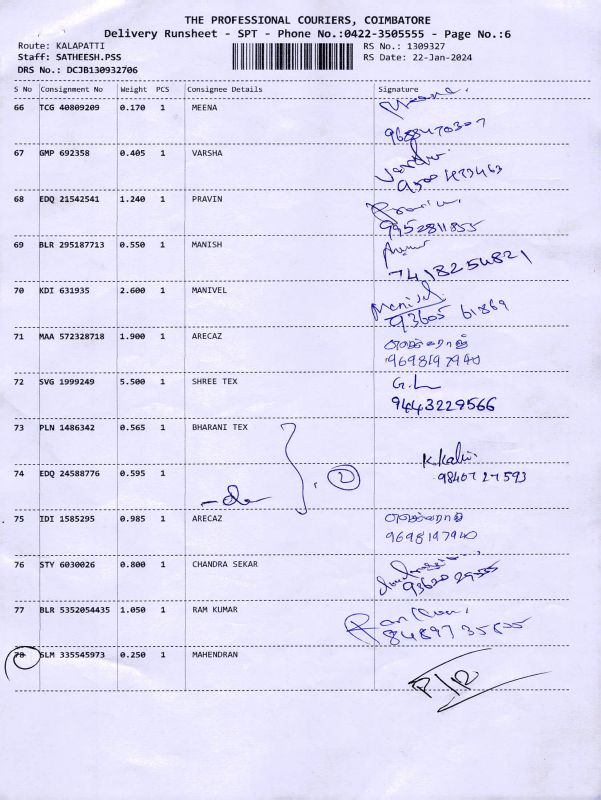 THE PROFESSIONAL COURIERS, COIMBATORE
Delivery Runsheet - SPT - Phone No.:0422-3505555 - Page No.:6
Route: KALAPATTI RS No.: 1309327
Staff: SATHEESH.PSS RS Date: 22-Jan-2024
DRS No.: DCJB130932706
S No Consignment No Weight PCS Consignee Details Signature
66 TCG 40809209 0.170 1 MEENA Meena
9688470307
67 GMP 692358 0.405 1 VARSHA
68 EDQ 21542541 1.240 1 PRAVIN
9952811855
69 BLR 295187713 0.550 1 MANISH
7418254821
70 KDI 631935 2.600 1 MANIVEL Manivel
93605 61869
71 MAA 572328718 1.900 1 ARECAZ
9698197940
72 SVG 1999249 5.500 1 SHREE TEX
9443229566
73 PLN 1486342 0.565 1 BHARANI TEX
74 EDQ 24588776 0.595 1 - do 2
9840727593
75 IDI 1585295 0.985 1 ARECAZ
9698197940
76 STY 6030026 0.800 1 CHANDRA SEKAR
77 BLR 5352054435 1.050 1 RAM KUMAR
78 SLM 335545973 0.250 1 MAHENDRAN